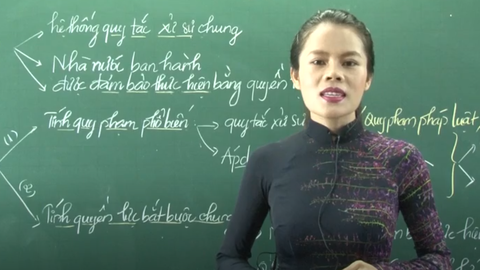 hệ thống quy tắc xử sự chung
Nhà nước ban hành
được đảm bảo thực hiện bằng quyền
(1) Tính quy phạm phổ biến
quy tắc xử sự
Quy phạm pháp luật
Apd
(2) Tính quyền lực bắt buộc chung